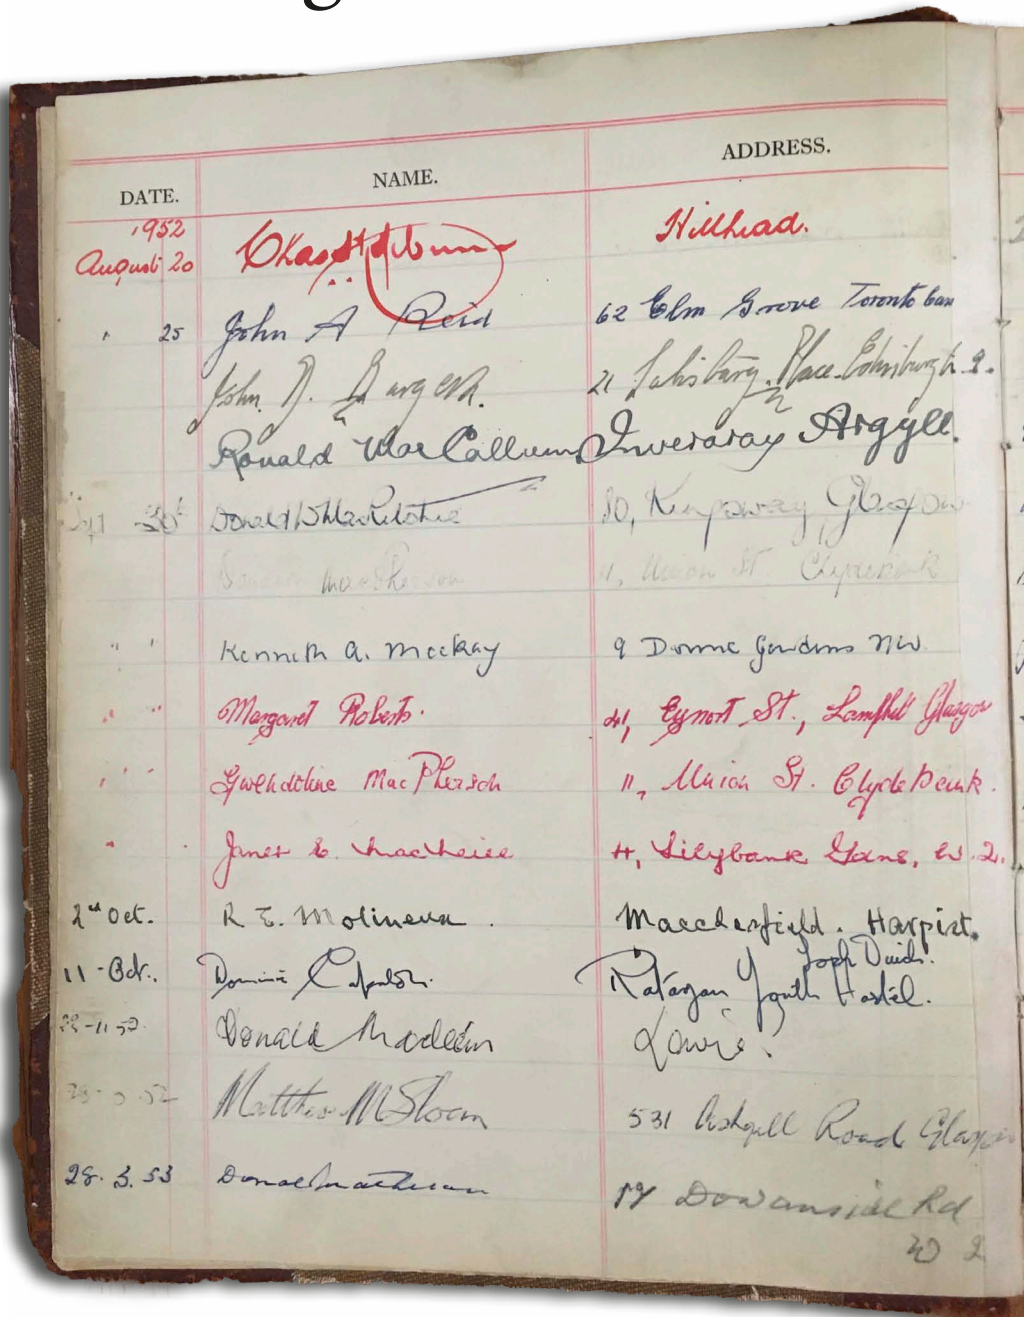 DATE. NAME. ADDRESS.
1952
August 20 Hillhead.
" 25 John A Reid 62 Elm Grove Toronto Can
John D. Burgess. 21 Salisbury Place Edinburgh 9.
Ronald MacCallum Inveraray Argyll.
Sept 30th Donald W MacRitchie 80, Kingsway, Glasgow
MacPherson 11, Union St. Clydebank
" " Kenneth A. Mackay 9 Doune Gardens NW.
" " Margaret Roberts. 41, Eynort St., Lamhill Glasgow
" " " Gwendoline MacPherson 11, Union St. Clydebank.
" Janet E. 4, Lilybank Gdns, W.2.
2nd Oct. R E. Molineux. Macclesfield. Harpist.
11-Oct. Ratagan Youth Hostel.
Donald
Matthew M Sloan 531 Ashgill Road Glasgow
28.3.53 Donald Matheson Dowanside Rd
W 2